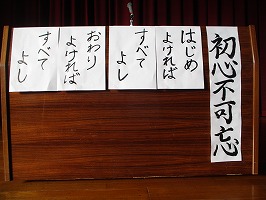 初心不可忘
はじめ
よければ
すべて
よし
おわり
よければ
すべて
よし